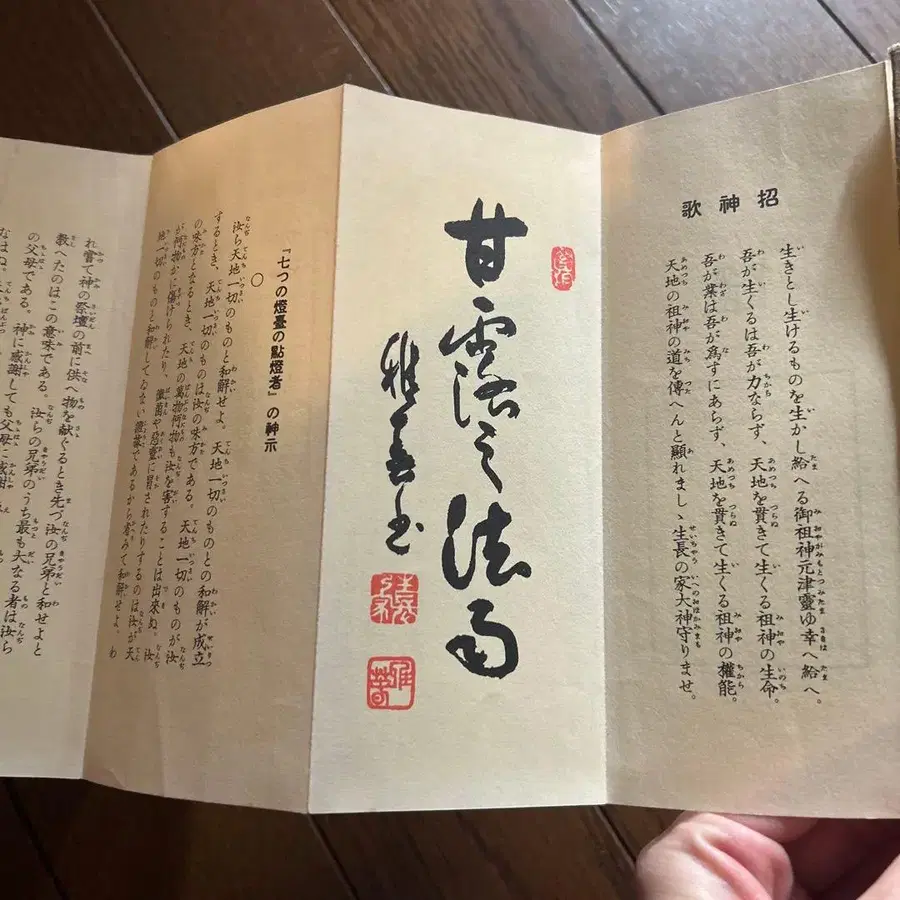 招神歌
生きとし生けるものを生かし給へる御祖神元津靈ゆ幸へ給へ。
吾が生くるは吾が力ならず、天地を貫きて生くる祖神の生命。
吾が業は吾が爲すにあらず、天地を貫きて生くる祖神の權能。
天地の祖神の道を傳へんと顯れましゝ生長の家大神守りませ。
甘露之法雨
雅春書
雅春
『七つの燈臺の點燈者』の神示
○
汝ら天地一切のものと和解せよ。天地一切のものとの和解が成立
するとき、天地一切のものは汝の味方である。天地一切のものが汝
の味方となるとき、天地の萬物何物も汝を害することは出來ぬ。汝
が何物かに傷けられたり、黴菌や惡靈に冒されたりするのは汝が天
地一切のものと和解してゐない證據であるから省みて和解せよ。わ
れ嘗て神の祭壇の前に供へ物を献ぐるとき先づ汝の兄弟と和せよと
教へたのはこの意味である。汝らの兄弟のうち最も大なる者は汝ら
の父母である。神に感謝しても父母に感謝